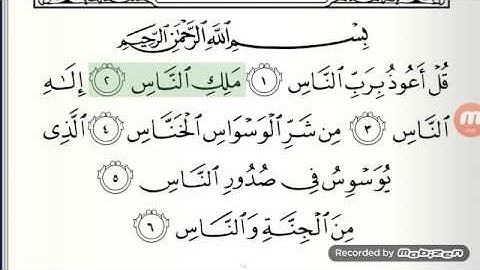 بِسْمِ ٱللَّهِ ٱلرَّحْمَٰنِ ٱلرَّحِيمِ
قُلْ أَعُوذُ بِرَبِّ ٱلنَّاسِ ١ مَلِكِ ٱلنَّاسِ ٢ إِلَٰهِ
ٱلنَّاسِ ٣ مِن شَرِّ ٱلْوَسْوَاسِ ٱلْخَنَّاسِ ٤ ٱلَّذِى
يُوَسْوِسُ فِى صُدُورِ ٱلنَّاسِ ٥
مِنَ ٱلْجِنَّةِ وَٱلنَّاسِ ٦
Recorded by mobizen